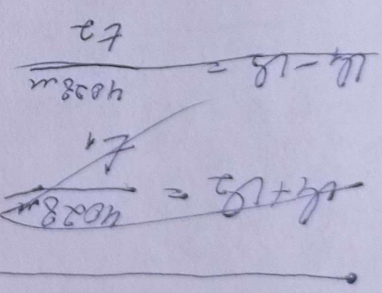 v₁+v₂ = 4028м
t₁
v₁-v₂ = 4028м
t₂